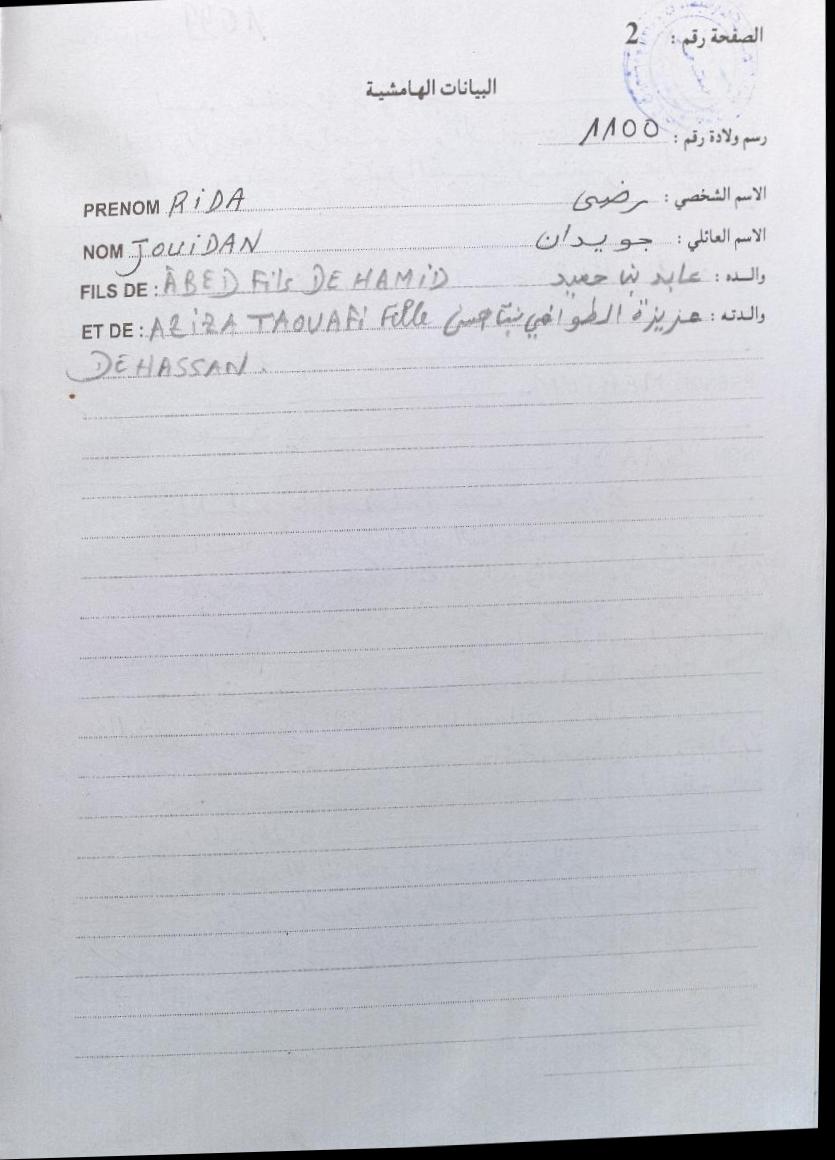 الصفحة رقم : 2
البيانات الهامشية
رسم ولادة رقم : 1100
PRENOM RiDA الاسم الشخصي : رضى
NOM JOUiDAN الاسم العائلي : جويدان
FILS DE : ABED Fils DE HAMiD والده : عابد بن حميد
ET DE : AZiZA TAOUAFi Fille والدته : عزيزة الطوافي بنت حسن
DE HASSAN.